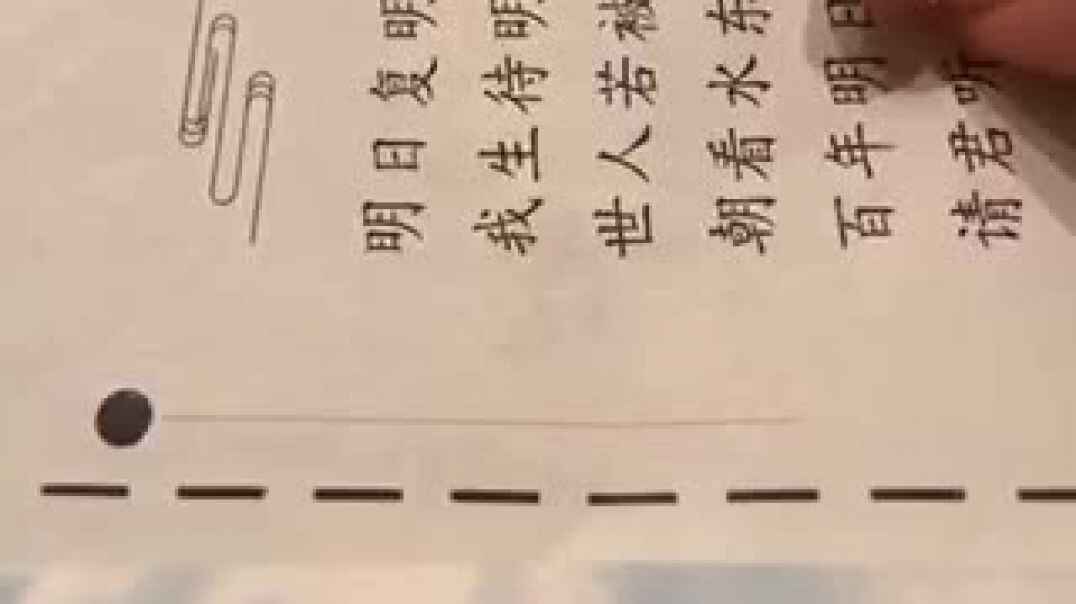 明日复明
我生待明
世人若被
朝看水东
百年明日
请君听